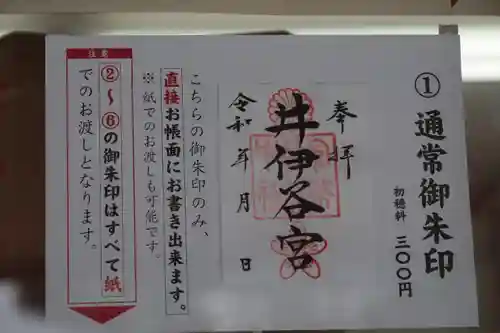 ①通常御朱印
初穂料 三〇〇円
奉拝
井伊谷宮
令和 年 月 日
こちらの御朱印のみ、
直接お帳面にお書き出来ます。
※紙でのお渡しも可能です。
注意
②～⑥の御朱印はすべて紙
でのお渡しとなります。